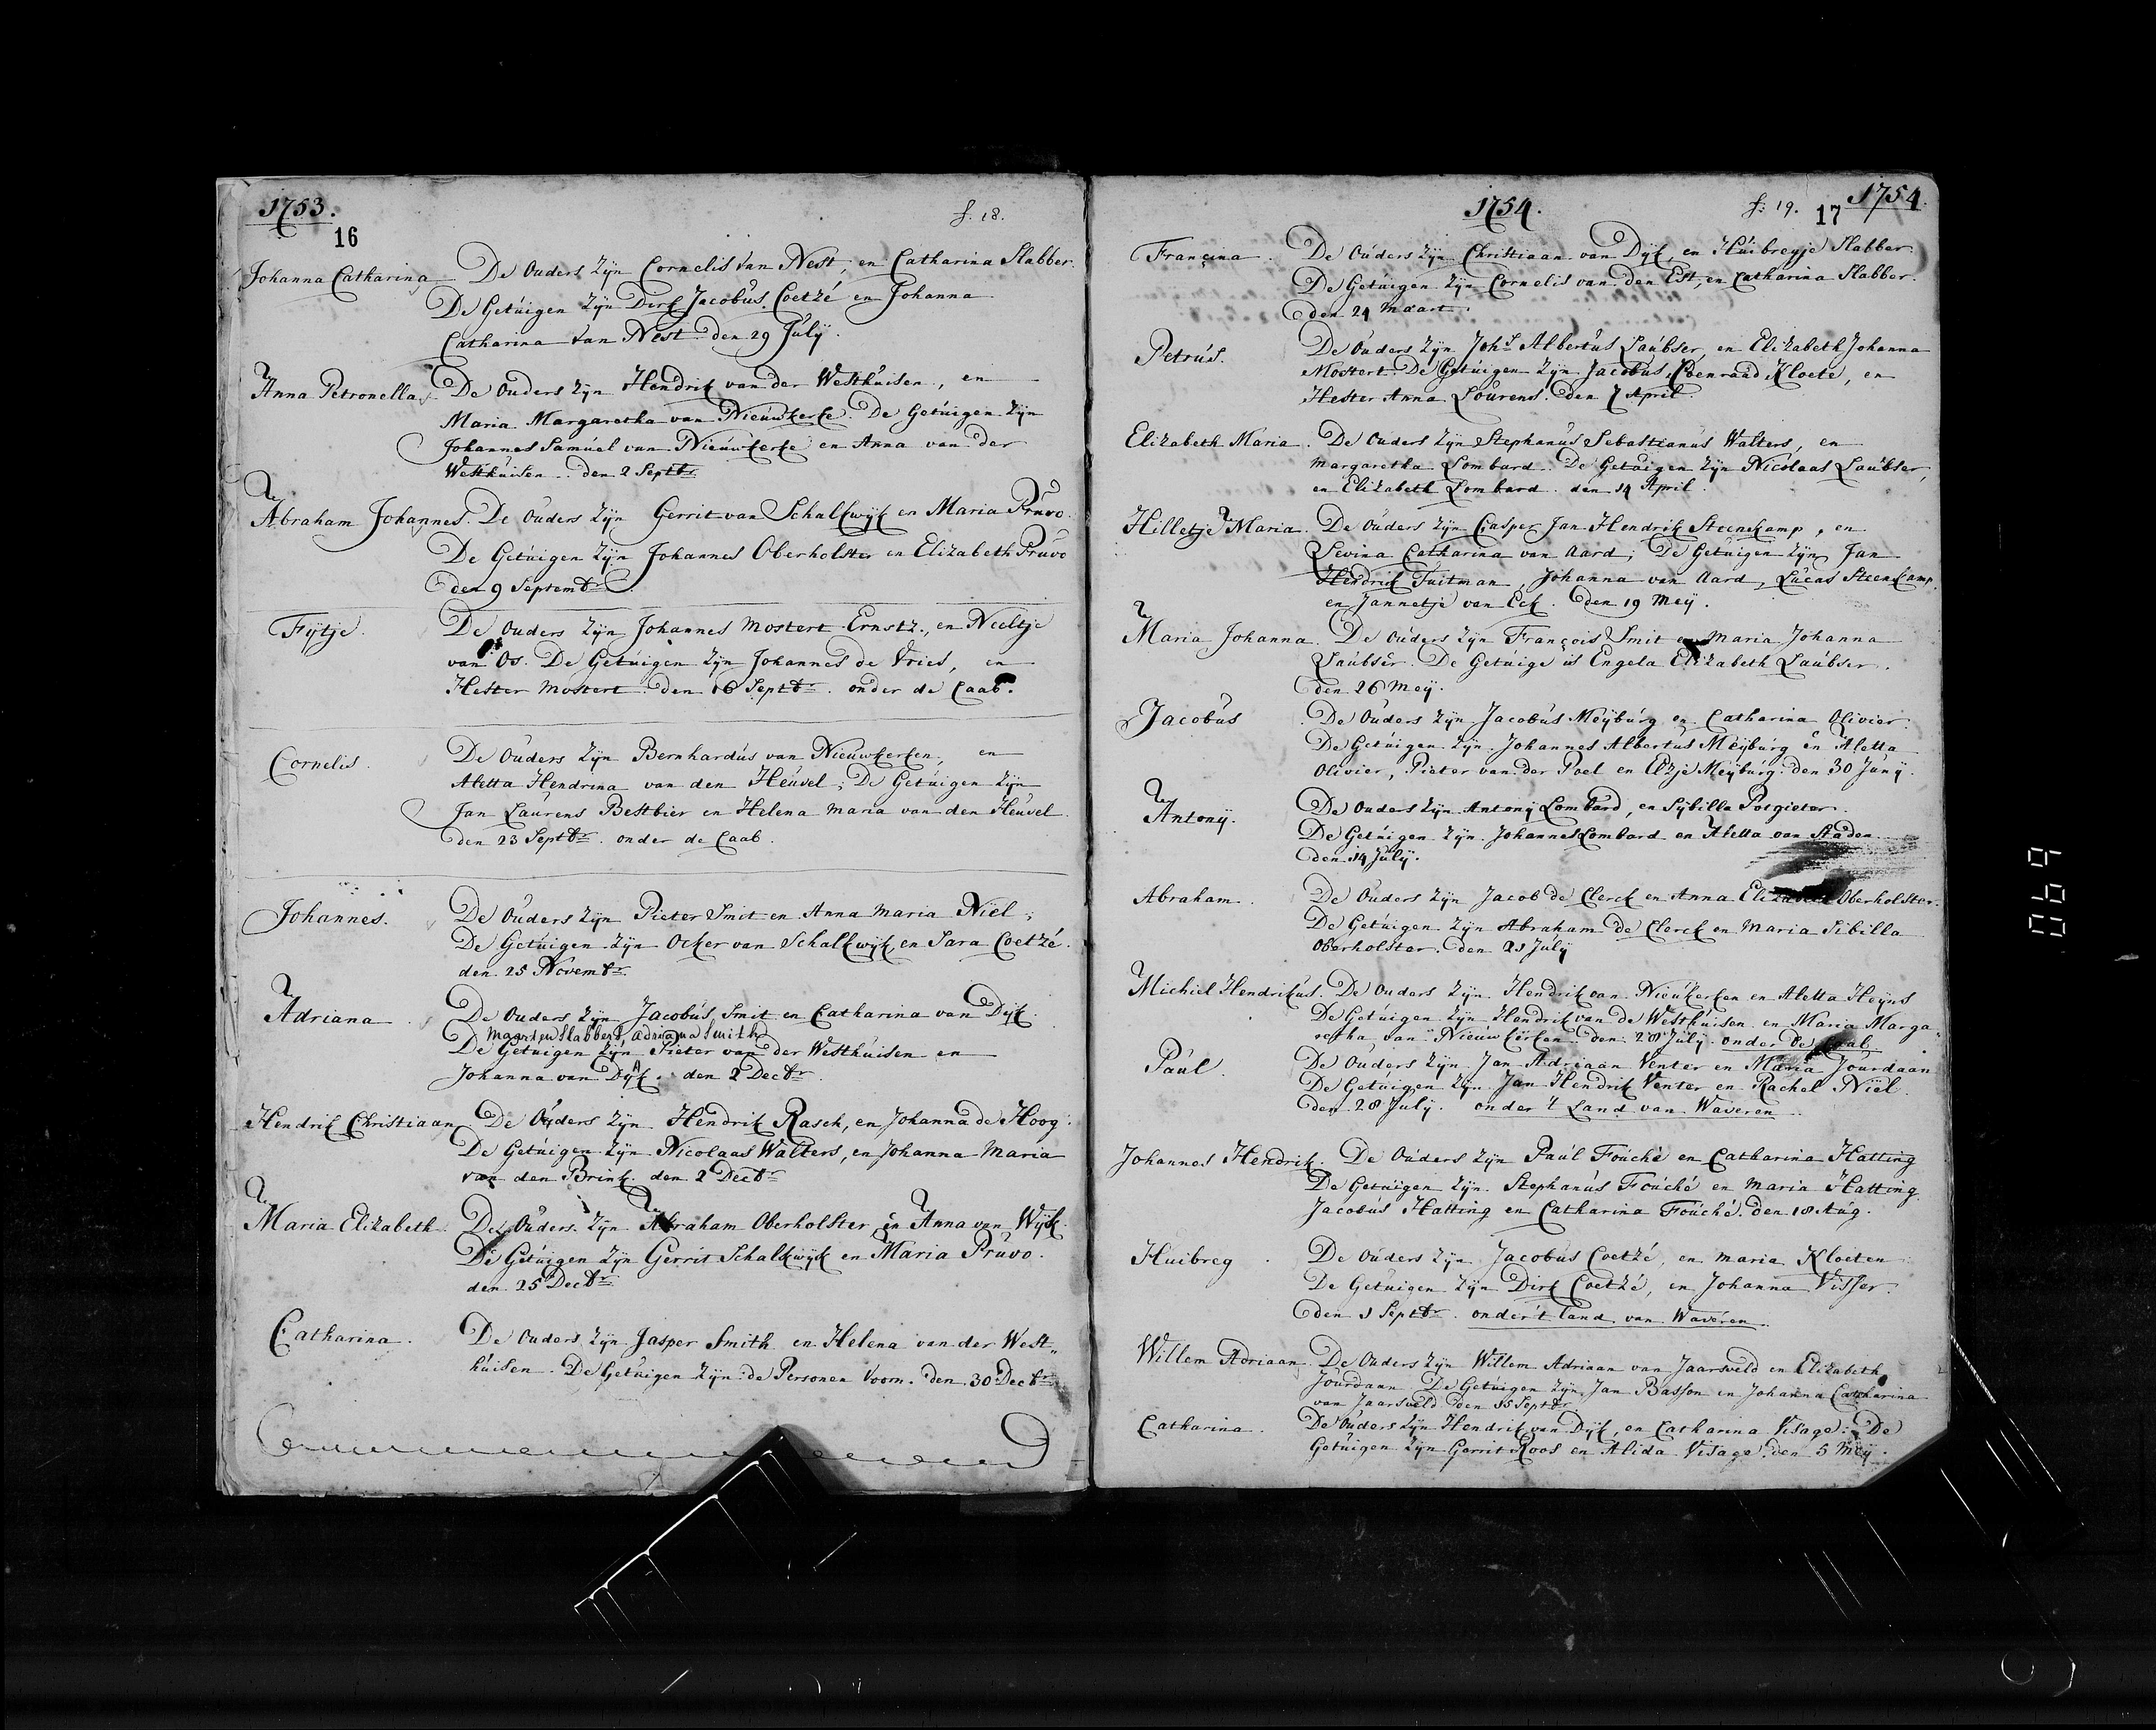 1753.
f. 18.
16
Johanna Catharina De Ouders zijn Cornelis van Nest, en Catharina Slabber.
De Getúigen zijn Dirk Jacobus Coetzé en Johanna
Catharina van Nest den 29 Julÿ.
Anna Petronella. De Ouders zijn Hendrik van der Westhuisen, en
Maria Margaretha van Nieúwkerke. De Getúigen zijn
Johannes Samúel van Nieúwkerke en Anna van der
Westhúisen. den 2 Septbr
Abraham Johannes. De Ouders zijn Gerrit van Schalkwÿk en Maria Prúvo.
De Getúigen zijn Johannes Oberholster en Elizabeth Prúvo
den 9 Septembr
Fÿtje. De Ouders zijn Johannes Mostert Ernstz., en Neeltje
van Os. De Getúigen zijn Johannes de Vries, en
Hester Mostert. den 16 Septbr. onder de Caab.
Cornelis. De Ouders zijn Bernhardús van Nieúwkerken, en
Aletta Hendrina van den Heúvel; De Getúigen zijn
Jan Laúrens Bestbier en Helena Maria van den Heúvel.
den 23 Septbr. onder de Caab.
Johannes. De Ouders zijn Pieter Smit en Anna Maria Niel;
De Getúigen zijn Ocker van Schalkwÿk, en Sara Coetzé.
den 25 Novembr
Adriana. De Ouders zijn Jacobús Smit en Catharina van Dÿk.
Maarten Slabbert, Adriana Smith
De Getúigen zijn Pieter van der Westhúisen en
Johanna van Dÿk. den 2 Decbr.
Hendrik Christiaan De Oúders zijn Hendrik Rasch, en Johanna de Hoog.
De Getúigen zijn Nicolaas Walters, en Johanna Maria
van den Brink. den 2 Decbr
Maria Elizabeth. De Oúders zijn Abraham Oberholster en Anna van Wÿk.
De Getúigen zijn Gerrit Schalkwÿk en Maria Prúvo.
den 25 Decbr
Catharina. De Ouders zijn Jasper Smith en Helena van der West„
húisen. De Getúigen zijn de Personen voorn. den 30 Decbr
1754.
f: 19.
17
1754.
Françina. De Oúders zijn Christiaan van Dÿk, en Húibregje Slabber.
De Getúigen zijn Cornelis van den Est, en Catharina Slabber.
den 24 Maart.
Petrús. De Oúders zijn Johs Albertús Laúbser, en Elizabeth Johanna
Mostert. De Getúigen zijn Jacobús Coenraad Kloete, en
Hester Anna Loúrens. den 7 April.
Elizabeth Maria. De Oúders zijn Stephanús Sebastianús Walters, en
Margaretha Lombard. De Getúigen zijn Nicolaas Laúbser,
en Elizabeth Lombard. den 14 April.
Hilletje Maria. De Oúders zijn Casper Jan Hendrik Steenekamp, en
Levina Catharina van Aard; De Getúigen zijn Jan
Hendrik Tuitman, Johanna van Aard, Lúcas Steenkamp,
en Jannetje van Eck. den 19 Meÿ.
Maria Johanna. De Oúders zijn François Smit en Maria Johanna
Laúbser. De Getúige is Engela Elizabeth Laúbser.
den 26 Meÿ.
Jacobús De Oúders zijn Jacobús Meÿbúrg en Catharina Olivier.
De Getúigen zijn Johannes Albertús Meÿbúrg en Aletta
Olivier, Pieter van der Poel en Elzje Meÿbúrg. den 30 Júnÿ.
Antonÿ. De Oúders zijn Antonÿ Lombard, en Sÿbilla Potgieter.
De Getúigen zijn Johannes Lombard en Aletta van Staden.
den 14 Júlÿ.
Abraham. De Oúders zijn Jacob de Clerck en Anna Elizabeth Oberholster.
De Getúigen zijn Abraham de Clerck en Maria Sibilla
Oberholster. den 21 Júlÿ
Michiel Hendrikús. De Oúders zijn Hendrik van Nieúkerken en Aletta Heÿns
De Getúigen zijn Hendrik van de Westhúisen en Maria Marga„
retha van Nieúwkerken. den 28 Júlÿ. onder de Caab.
Paúl. De Oúders zijn Jan Adriaan Venter en Maria Joúrdaan
De Getúigen zijn Jan Hendrik Venter en Rachel Niel.
den 28 Júlÿ. onder 't Land van Waveren.
Johannes Hendrik. De Oúders zijn Paúl Foúché en Catharina Hatting
De Getúigen zijn Stephanús Foúché en Maria Hatting.
Jacobús Hatting en Catharina Foúché. den 18 Aúg.
Húibreg. De Oúders zijn Jacobús Coetzé, en Maria Kloeten
De Getúigen zijn Dirk Coetzé, en Johanna Visser.
den 1 Septbr. onder 't land van Waveren.
Willem Adriaan. De Oúders zijn Willem Adriaan van Jaarsveld en Elizabeth
Joúrdaan De Getúigen zijn Jan Basson en Johanna Catharina
van Jaarsveld den 15 Septbr
Catharina. De Oúders zijn Hendrik van Dÿk, en Catharina Visage: De
Getúigen zijn Gerrit Roos en Alida Visage. den 5 Meÿ.
069